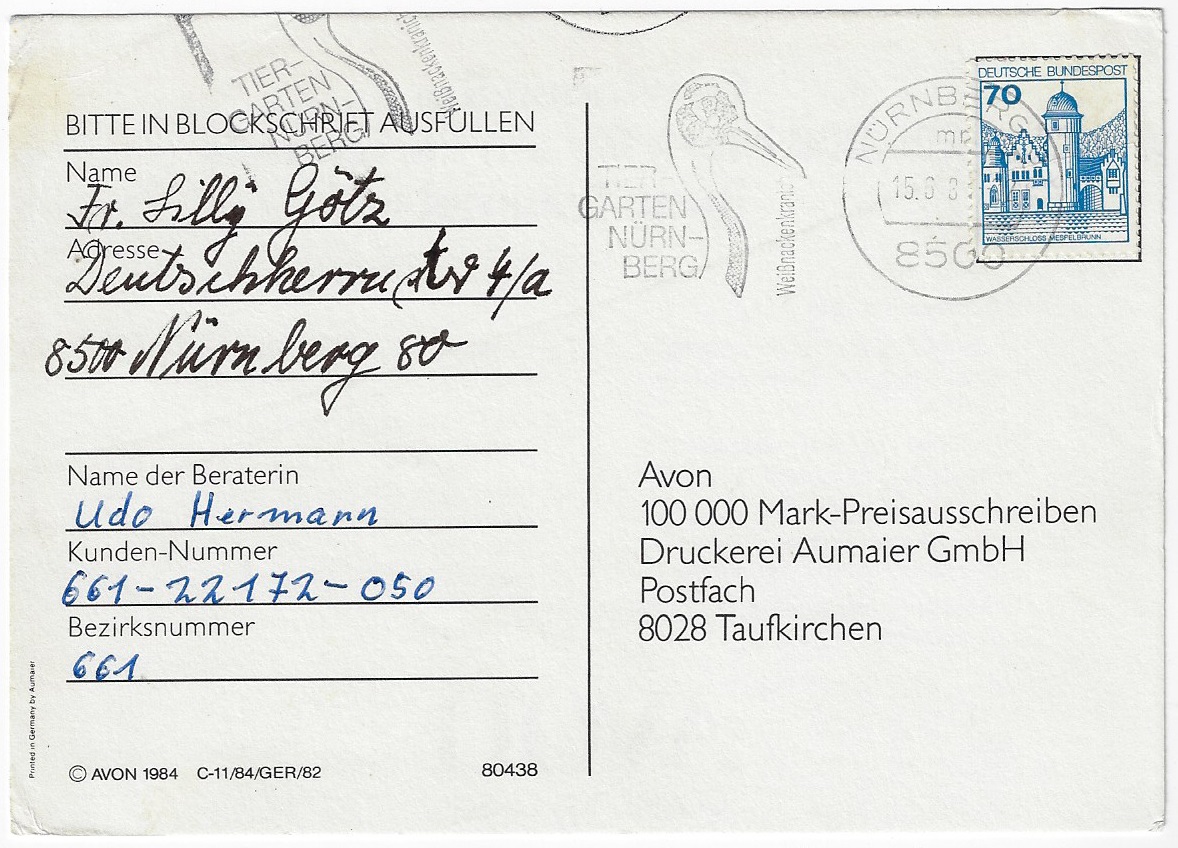 TIER-
GARTEN
NÜRN-
BERG
Weißnackenkranich
BITTE IN BLOCKSCHRIFT AUSFÜLLEN
Name
Fr. Lilly Götz
Adresse
Deutschherrnstr 4/a
8500 Nürnberg 80
Name der Beraterin
Udo Hermann
Kunden-Nummer
661-22172-050
Bezirksnummer
661
Printed in Germany by Aumaier
© AVON 1984 C-11/84/GER/82
80438
TIER-
GARTEN
NÜRN-
BERG
Weißnackenkranich
NÜRNBERG
mp
15.6.8
8500
DEUTSCHE BUNDESPOST
70
WASSERSCHLOSS MESPELBRUNN
Avon
100 000 Mark-Preisausschreiben
Druckerei Aumaier GmbH
Postfach
8028 Taufkirchen